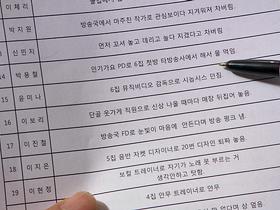 이체리
박지원 방송국에서 마주친 작가로 관심보이다 지겨워져 차버림.
신민지 먼저 꼬셔 놓고 데리고 놀다 지겹다고 차버림
14 박용철 인기가요 PD로 6집 첫방 타방송사에서 해서 물 먹임.
15 윤미나 6집 뮤직비디오 감독으로 시놉시스 안줌
16 이보리 단골 옷가게 직원으로 신상 나올 때마다 매장 뒤집어 놓음.
17 이진철 방송국 FD로 눈빛이 마음에 안든다며 방송 펑크 냄.
18 이지은 5집 음반 자켓 디자이너로 20번 디자인 퇴짜 놓음.
19 이현정 보컬 트레이너로 자기가 노래 못 부르는 거
생각안하고 탓함.
4집 안무 트레이너로 안무